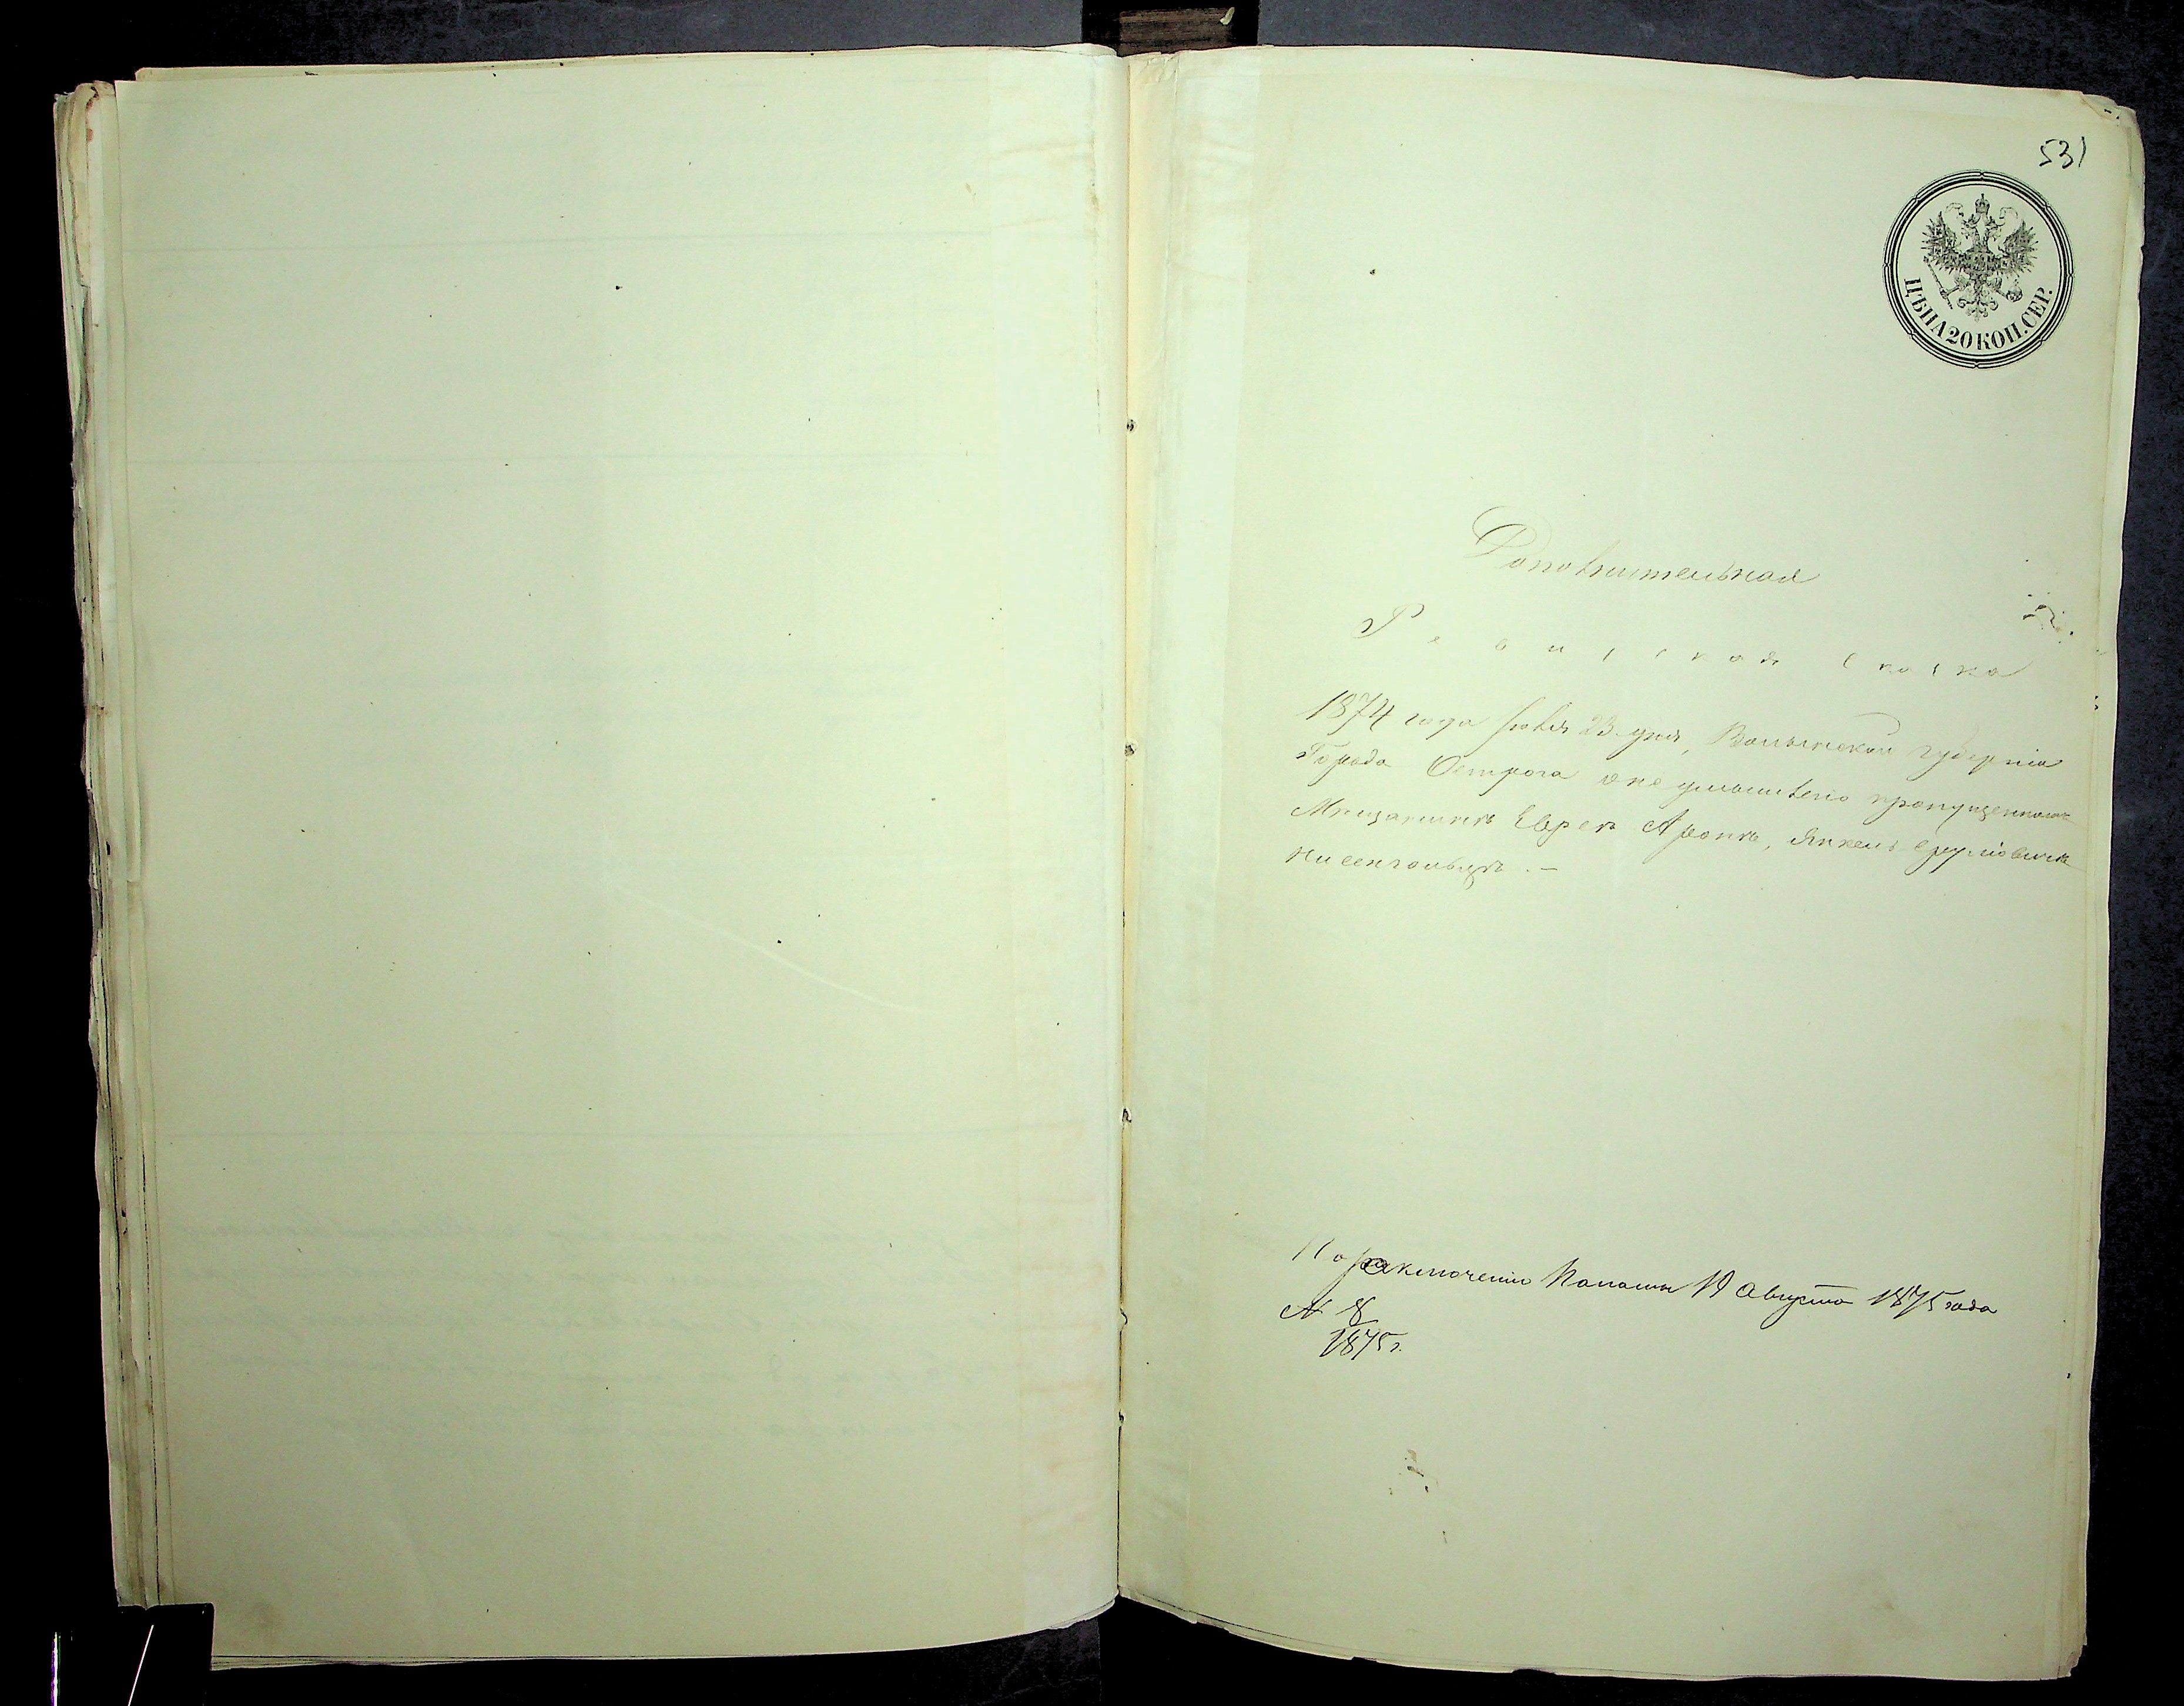 531
ЦѢНА 20 КОП. СЕР.
Дополнительная
Ревизская сказка
1874 года Іюля 23 дня, Волынской губерніи
Города Острога о не умышлено пропущенномъ
Мѣщанинѣ Евреѣ Аронѣ, Янкель Сруліовичѣ
Нисенгольцѣ. —
По заключенію Палаты 19 Августа 1875 года
№ 8
1875 г.